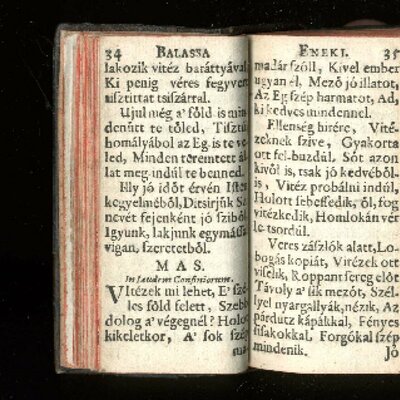 34 BALASSA
lakozik vitéz baráttyával
Ki penig véres fegyver
tisztittat tsiszárral.
Ujul még a' főld is min
denűtt te tőled, Tisztúl
homályából az Eg is te ve
led, Minden teremtett ál
lat meg indúl te benned.
Illy jó időt érvén Isten
kegyelméből, Ditsirjűk Sz
nevét fejenként jó sziből,
Igyunk, lakjunk egymással
vigan, szeretetből.
MAS.
In laudem Confiniorum.
VItézek mi lehet, E' szé-
les főld felett, Szebb
dolog a' végegnél? Holott
kikeletkor, A' sok szép
ma-
ENEKI. 35
madár szóll, Kivel ember
ugyan él, Mező jó illatot,
Az Eg szép harmatot, Ad,
ki kedves mindennel.
Ellenség hirére, Vité-
zeknek szive, Gyakorta
ott fel-buzdúl. Sőt azon
kivől is, tsak jó kedvéből-
is, Vitéz probálni indúl,
Holott sebesedik, ől, fog
vitézkedik, Homlokán vér
le tsordúl.
Veres zászlók alatt, Lo-
bogás kopiát, Vitézek ott
viselik, Roppant sereg előt
Távoly a' sik mezőt, Szél-
lyel nyargallyák, nézik, Az
párdutz kápákkal, Fényes
sisakokkal, Forgókal szép
mindenik. Jó